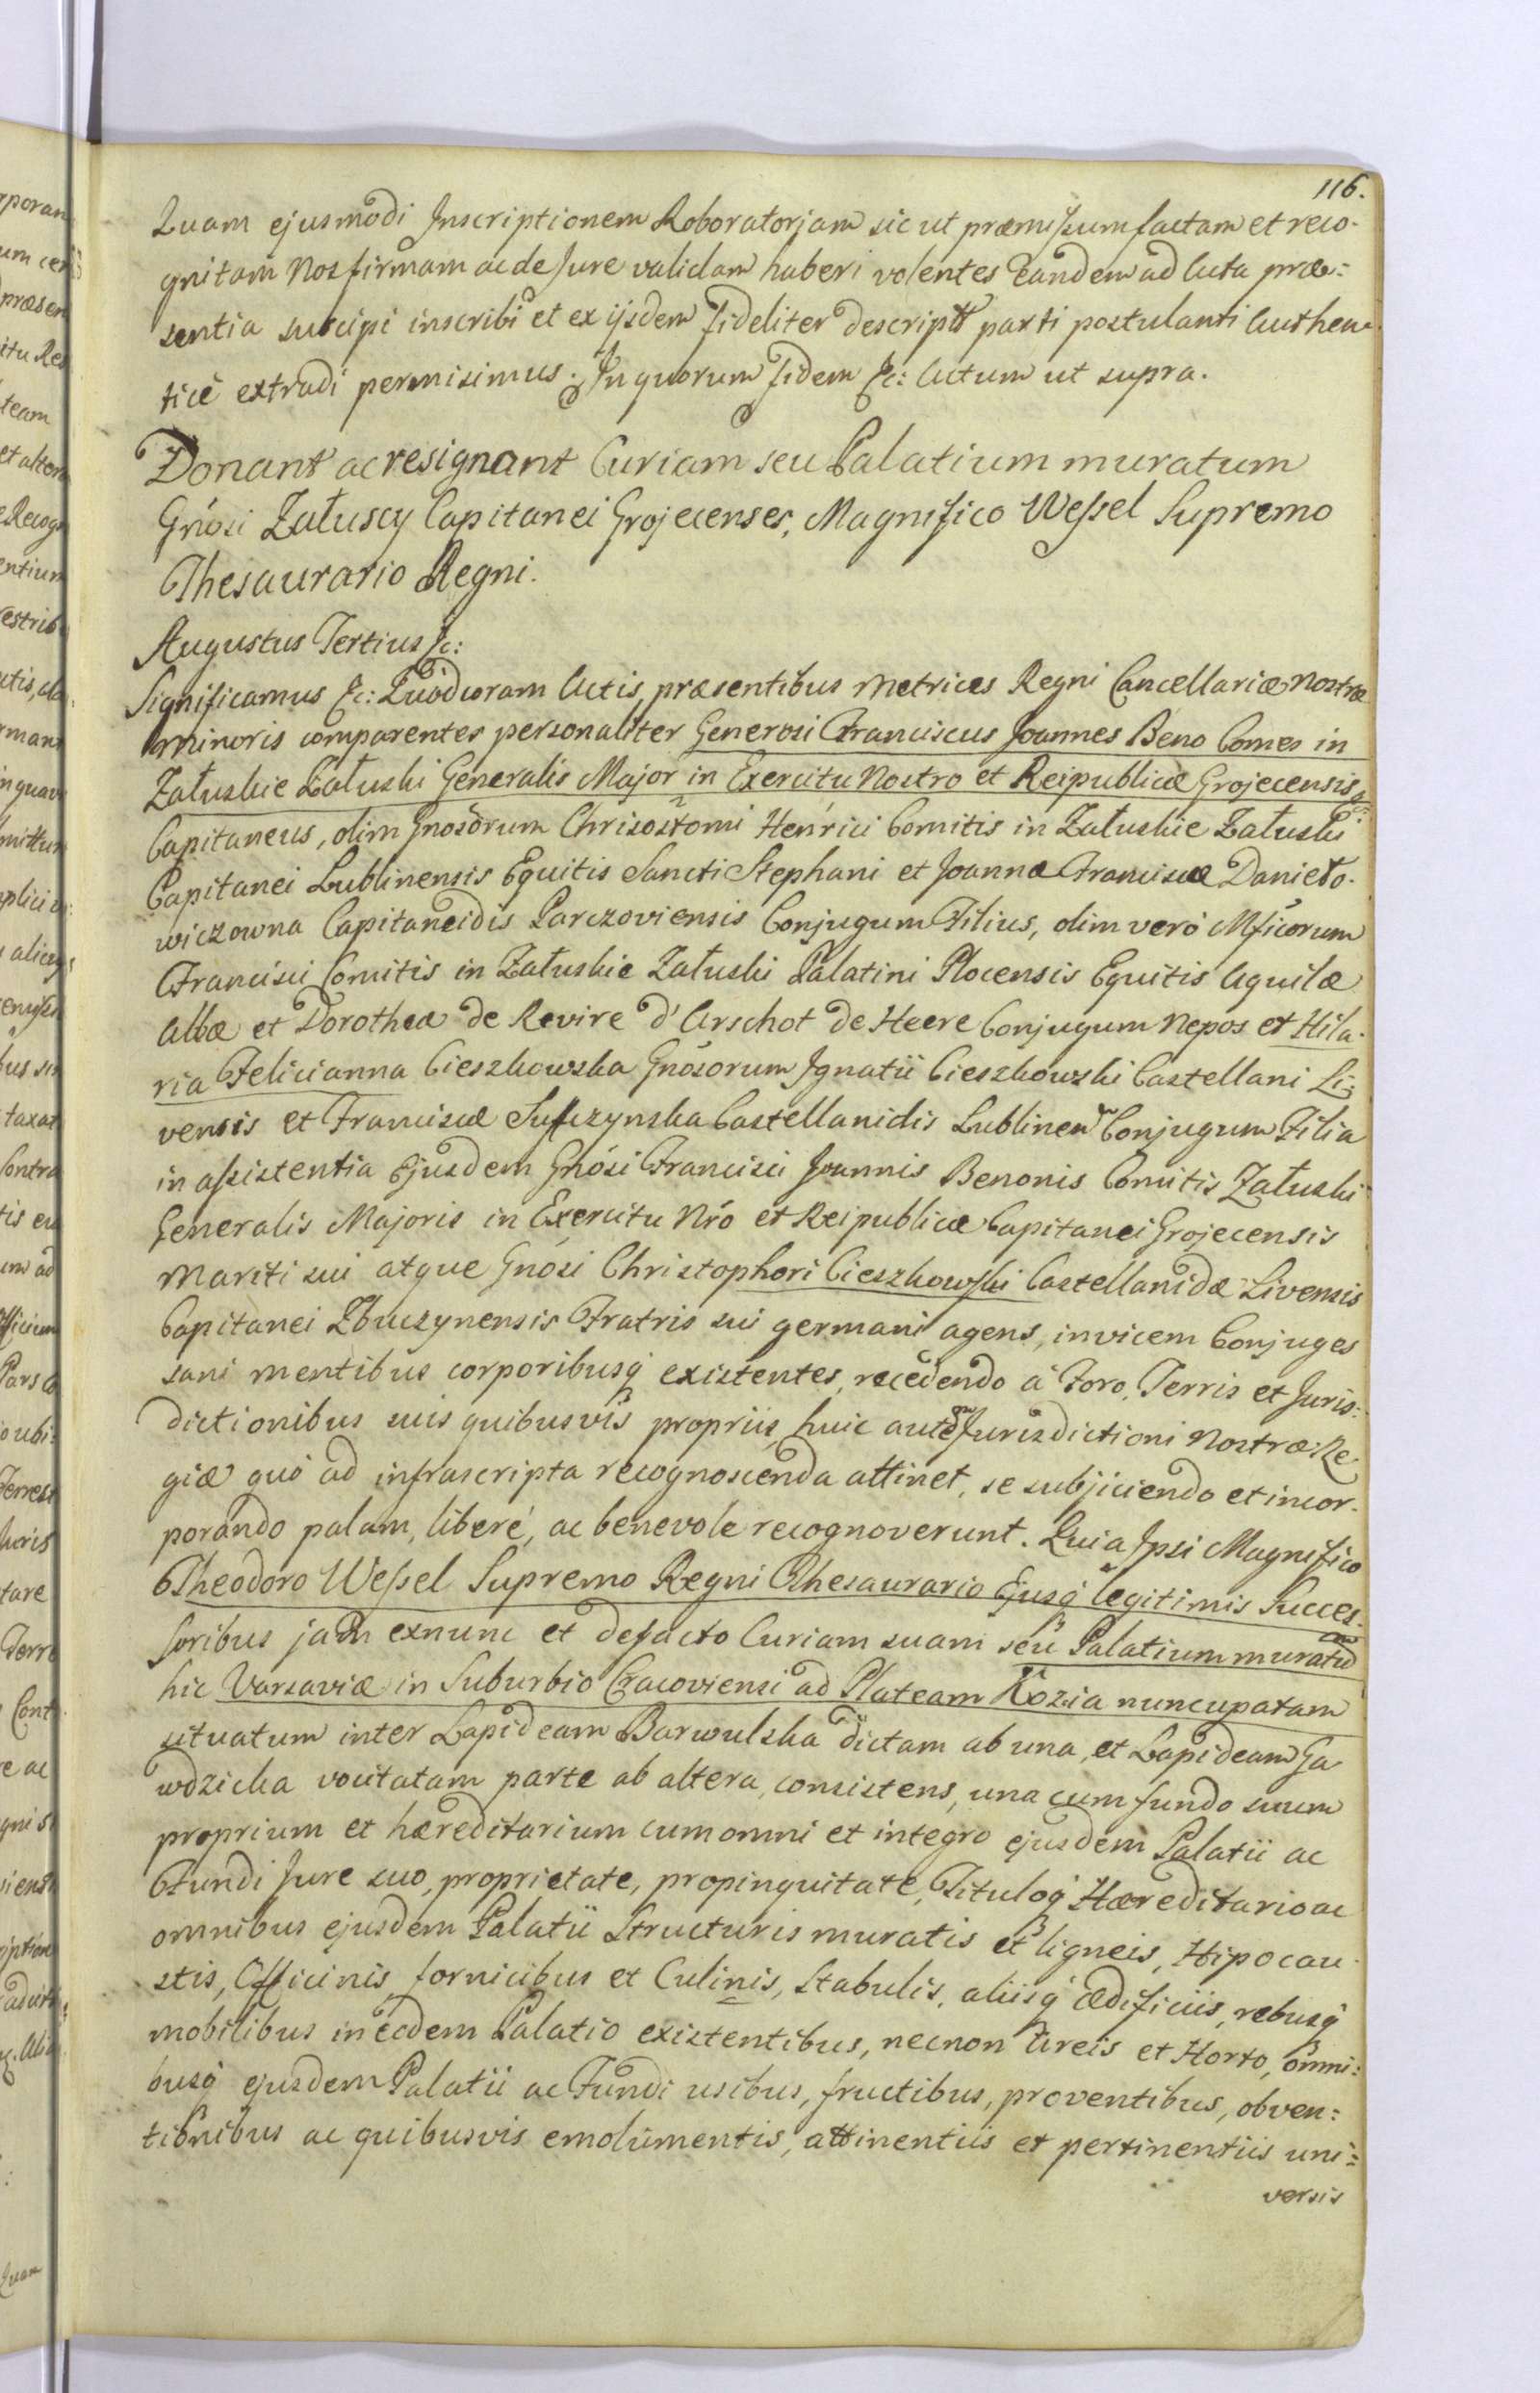 116.
Quam ejusmodi Inscriptionem Roboratoriam sic ut præmissum factam et reco-
gnitam Nos firmam ac de Jure validam haberi volentes Eandem ad Acta præ:
sentia suscipi inscribi et ex ijsdem fideliter descriptt parti postulanti Authen
ticè extradi permisimus. In quorum fidem &c: Actum ut supra.
Donant ac resignant Curiam seu Palatium muratum
Gnosi Załuscy Capitanei Grojecenses, Magnifico Wessel Supremo
Thesaurario Regni.
Augustus Tertius &c:
Significamus &c: Quod coram Actis præsentibus Metrices Regni Cancellariæ Nostræ
minoris comparentes personaliter Generosi Franciscus Joannes Beno Comes in
Załuskie Załuski Generalis Major in Exercitu Nostro et Reipublicæ Grojecensis
Capitaneus, olim Gnosorum Chrisostomi Henrici Comitis in Załuskie Załuski
Capitanei Lublinensis Equitis Sancti Stephani et Joannæ Franciscæ Daniełо-
wiczowna Capitaneidis Parczoviensis Conjugum Filius, olim verò Mficorum
Francisci Comitis in Załuskie Załuski Palatini Plocensis Equitis Aquilæ
Albæ et Dorotheæ de Revire d'Arschot de Heere Conjugum Nepos et Hila-
ria Felicianna Cieszkowska Gnosorum Ignatii Cieszkowski Castellani Li:
vensis et Franciscæ Sufczynska Castellanidis Lublinen Conjugum Filia
in assistentia Ejusdem Gnosi Francisci Joannis Benonis Comitis Załuski
Generalis Majoris in Exercitu Nro et Reipublicæ Capitanei Grojecensis
Mariti sui atque Gnosi Christophori Cieszkowski Castellanidæ Livensis
Capitanei Zbuczynensis Fratris sui germani agens, invicem Conjuges
sani mentibus corporibusq existentes, recedendo à Foro, Terris et Juris:
dictionibus suis quibusvis propriis, huic autem Jurisdictioni Nostræ Re
giæ quò ad infrascripta recognoscenda attinet, se subjiciendo et incor-
porando palam, liberè, ac benevole recognoverunt. Quia Ipsi Magnifico
Theodoro Wessel Supremo Regni Thesaurario Ejusq legitimis Succes-
soribus jam exnunc et defacto Curiam suam seu Palatium muratum
hic Varsaviæ in Suburbio Cracoviensi ad Plateam Kozia nuncupatam
situatum inter Lapideam Barwulska dictam ab una, et Lapideam Ga
wdzicka vocitatam parte ab altera, consistens, una cum fundo suum
proprium et hæreditarium cum omni et integro ejusdem Palatii ac
Fundi Jure suo, proprietate, propinquitate, Tituloq Hæreditario ac
omnibus ejusdem Palatii Structuris muratis et ligneis, Hipocau-
stis, Officinis, fornicibus et Culinis, Stabulis, aliisq ædificiis, rebusq
mobilibus in eodem Palatio existentibus, necnon Areis et Horto, omni:
busq ejusdem Palatii ac Fundi usibus, fructibus, proventibus, obven:
tionibus ac quibusvis emolumentis, attinentiis et pertinentiis uni:
versis